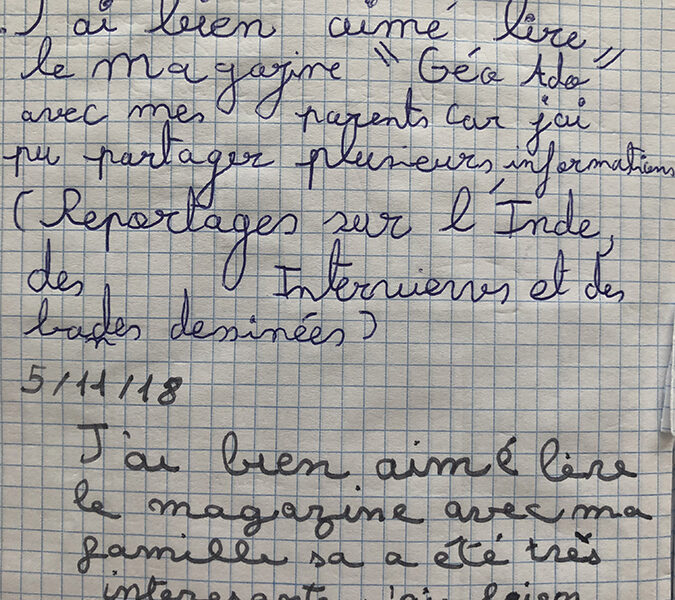 J'ai bien aimé lire
le magazine "Géo Ado"
avec mes parents car j'ai
pu partager plusieurs informations
(Reportages sur l'Inde,
des Interviewes et des
bandes dessinées)
5/11/18
J'ai bien aimé lire
le magazine avec ma
famille sa a été très
interesante j'ai bien